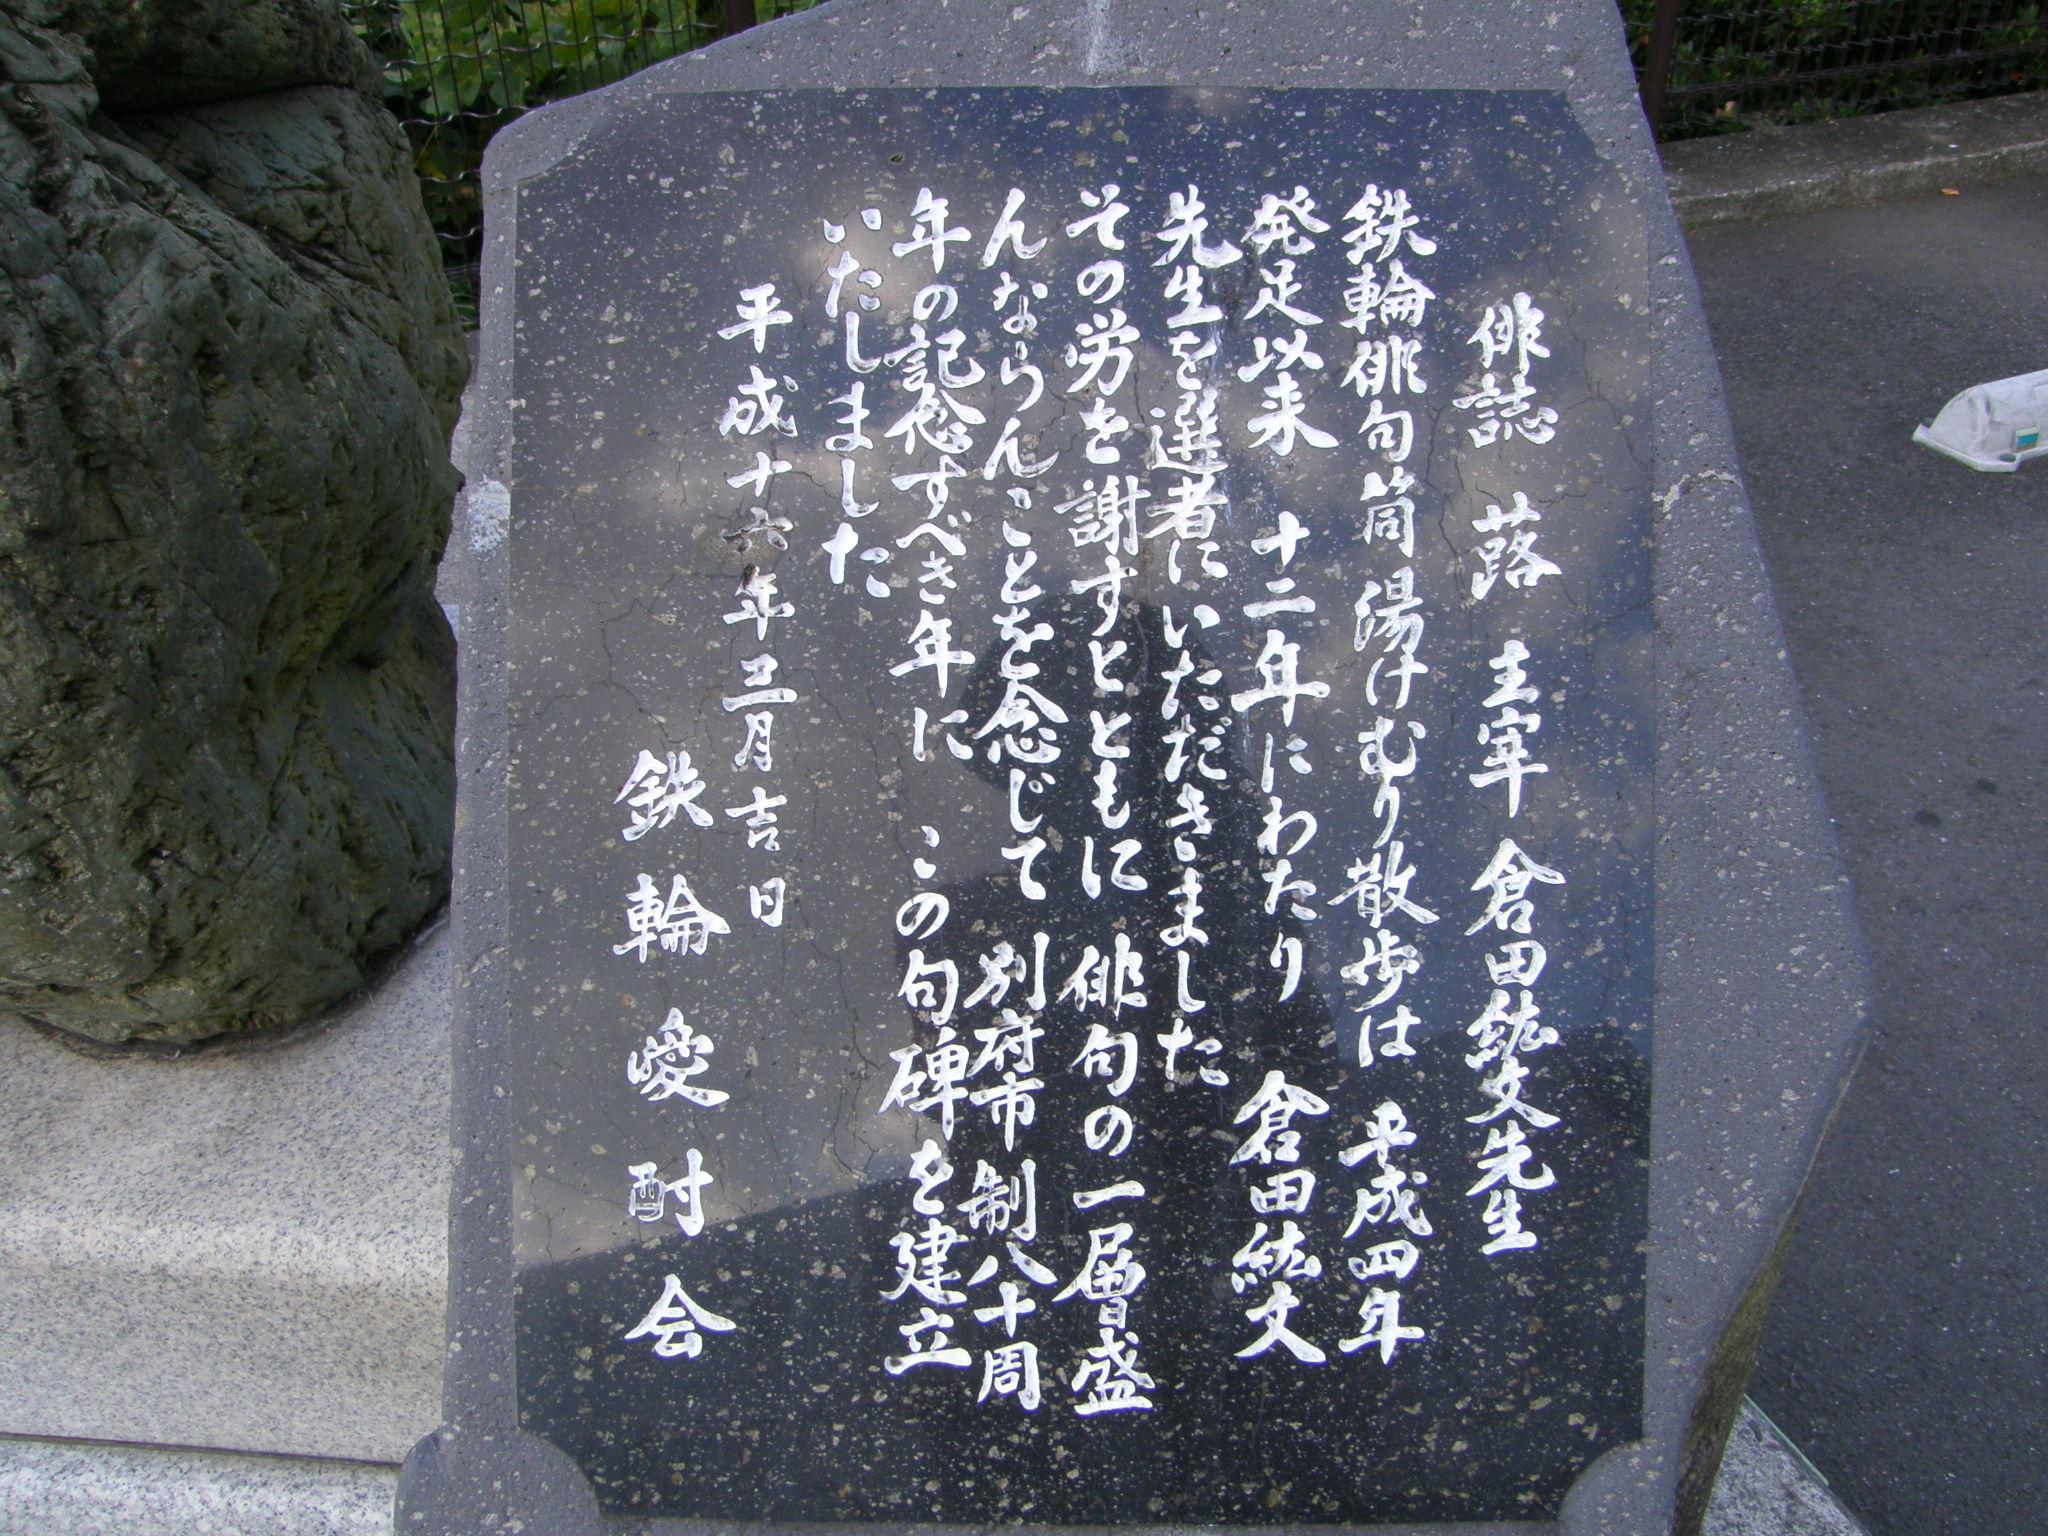 俳誌 蕗 主宰 倉田紘文先生
鉄輪俳句筒 湯けむり散歩は 平成四年
発足以来 十二年にわたり 倉田紘文
先生を選者にいただきました
その労を謝すとともに 俳句の一層盛
んならんことを念じて 別府市制八十周
年の記念すべき年に この句碑を建立
いたしました
平成十六年三月吉日
鉄輪愛酎会